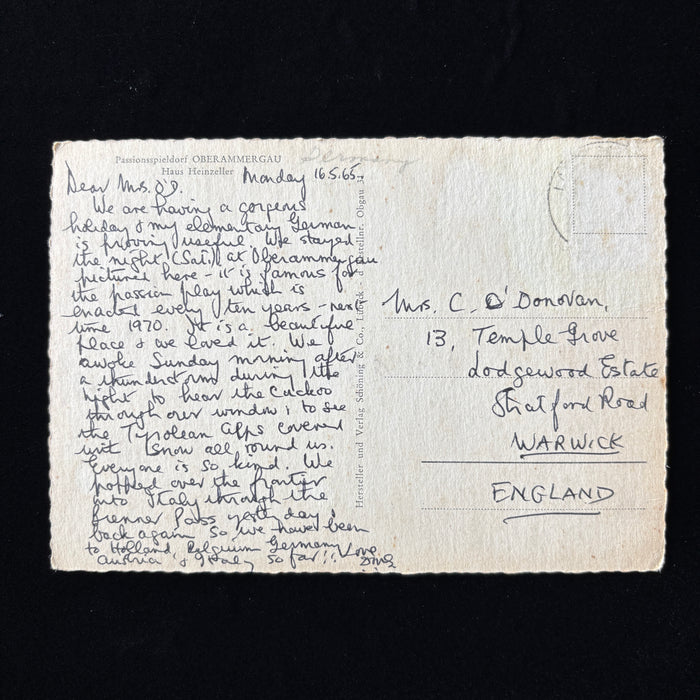 Passionsspieldorf OBERAMMERGAU
Haus Heinzeller
Germany
Dear Mrs. O'D. Monday 16.5.65.
We are having a gorgeous
holiday & my elementary German
is proving useful. We stayed
the night (Sat.) at Oberammergau
pictured here - it is famous for
the passion play which is
enacted every ten years - next
time 1970. It is a beautiful
place & we loved it. We
awoke Sunday morning after
a thunderstorm during the
night to hear the Cuckoo
through our window & to see
the Tyrolean Alps covered
with snow all round us.
Everyone is so kind. We
popped over the frontier
into Italy through the
Brenner Pass yesterday &
back again so we have been
to Holland, Belgium Germany
Austria & Italy so far!! Love
Hersteller und Verlag Schöning & Co., Lübeck
Obgau
Mrs. C. O'Donovan,
13, Temple Grove
Lodgewood Estate
Stratford Road
WARWICK
ENGLAND